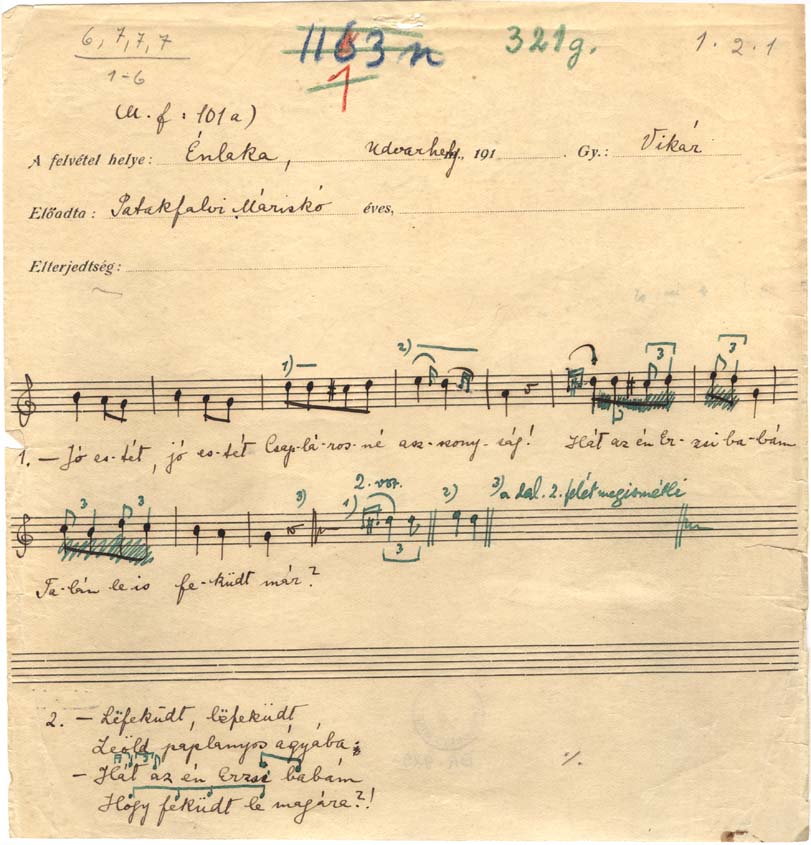 6, 7, 7, 7
1-6
1163 n
1
321g.
1. 2. 1
(M. f : 101a)
A felvétel helye: Énlaka, Udvarhely m., 191 . Gy.: Vikár
Előadta: Patakfalvi Máriskó éves,
Elterjedtség:
1) 2) 3 3
1. — Jó es-tét, jó es-tét Csap-lá-ros-né asz-szony-ság! Hát az én Er-zsi ba-bám
3 3 3) 2. vsz. 1) 3 2) 3) a dal 2. felét megismétli
Ta-lán le is fe-küdt már?
2. — Lëfeküdt, lëfeküdt,
Zeöld paplanyos ágyába;
— Hát az én Erzsi babám
Hogy feküdt le magára?!
%.